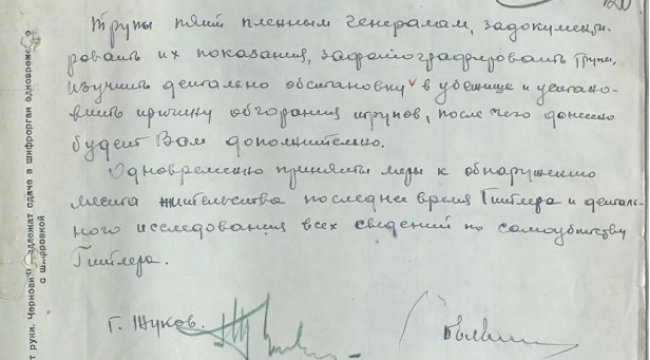 120
Трупы пяти пленным генералам, задокументи-
ровать их показания, зафотографировать трупы,
изучить детально обстановку в убежище и устано-
вить причину обгорания трупов, после чего донесено
будет Вам дополнительно.
Одновременно приняты меры к обнаружению
места жительства последнее время Гитлера и деталь-
ного исследования всех сведений по самоубийству
Гитлера.
Г. Жуков.
т руки. Черновик
длежат сдаче в шифрорган одновреме
с шифровкой